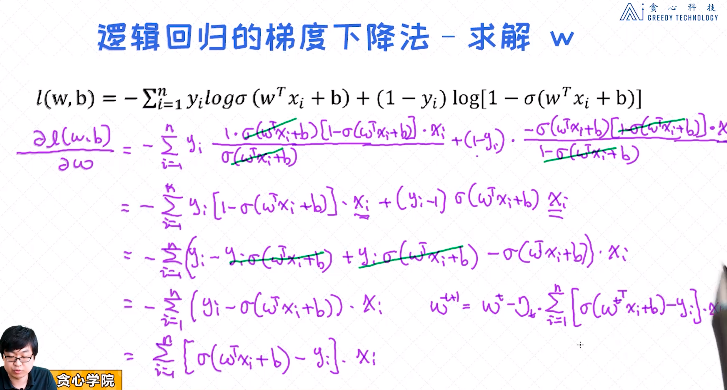 贪心科技
GREEDY TECHNOLOGY
逻辑回归的梯度下降法 - 求解 w
l(w,b) = −∑ᵢ₌₁ⁿ yᵢlogσ (wᵀxᵢ + b) + (1 − yᵢ) log[1 − σ(wᵀxᵢ + b)]
∂l(w.b)/∂w = − ∑ᵢ₌₁ⁿ yᵢ (1·σ(wᵀxᵢ+b)[1−σ(wᵀxᵢ+b)]·xᵢ)/(σ(wᵀxᵢ+b)) + (1−yᵢ) · (−σ(wᵀxᵢ+b)[1−σ(wᵀxᵢ+b)]·x)/(1−σ(wᵀxᵢ+b))
= − ∑ᵢ₌₁ⁿ yᵢ[1−σ(wᵀxᵢ+b)]·xᵢ + (yᵢ−1) σ(wᵀxᵢ+b) xᵢ
= − ∑ᵢ₌₁ⁿ (yᵢ − yᵢσ(wᵀxᵢ+b) + yᵢσ(wᵀxᵢ+b) − σ(wᵀxᵢ+b))·xᵢ
= − ∑ᵢ₌₁ⁿ (yᵢ−σ(wᵀxᵢ+b))·xᵢ wᵗ⁺¹ = wᵗ − ηₜ·∑ᵢ₌₁ⁿ [σ(wᵗᵀxᵢ+b)−yᵢ]·x
= ∑ᵢ₌₁ⁿ [σ(wᵀxᵢ+b) − yᵢ]·xᵢ
贪心学院